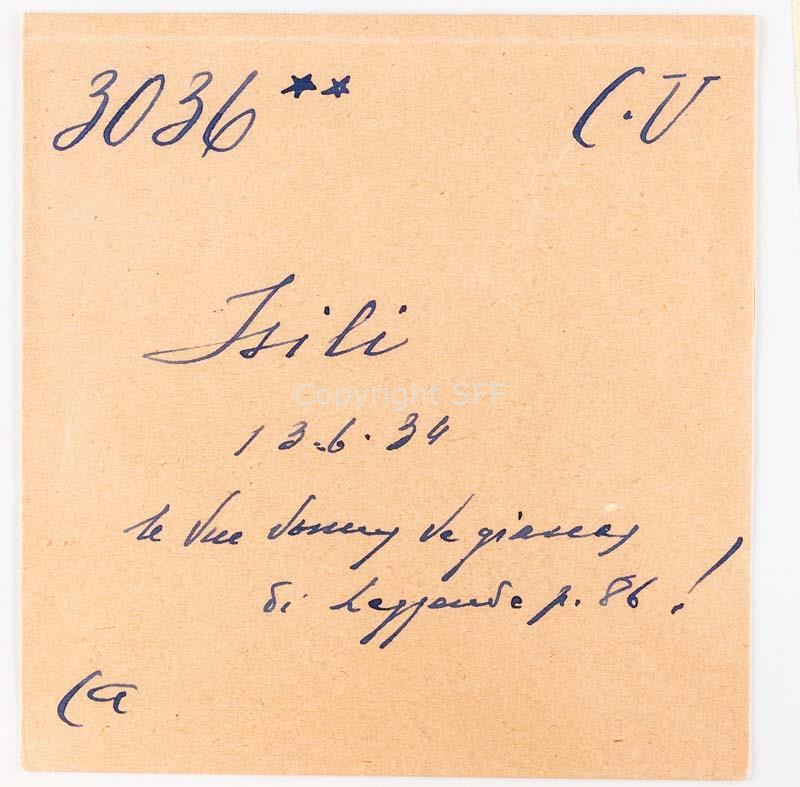 3036 ** C.V
Isili
Copyright SFF
13.6.34
le due donne
di Leggende p. 86!
Ca